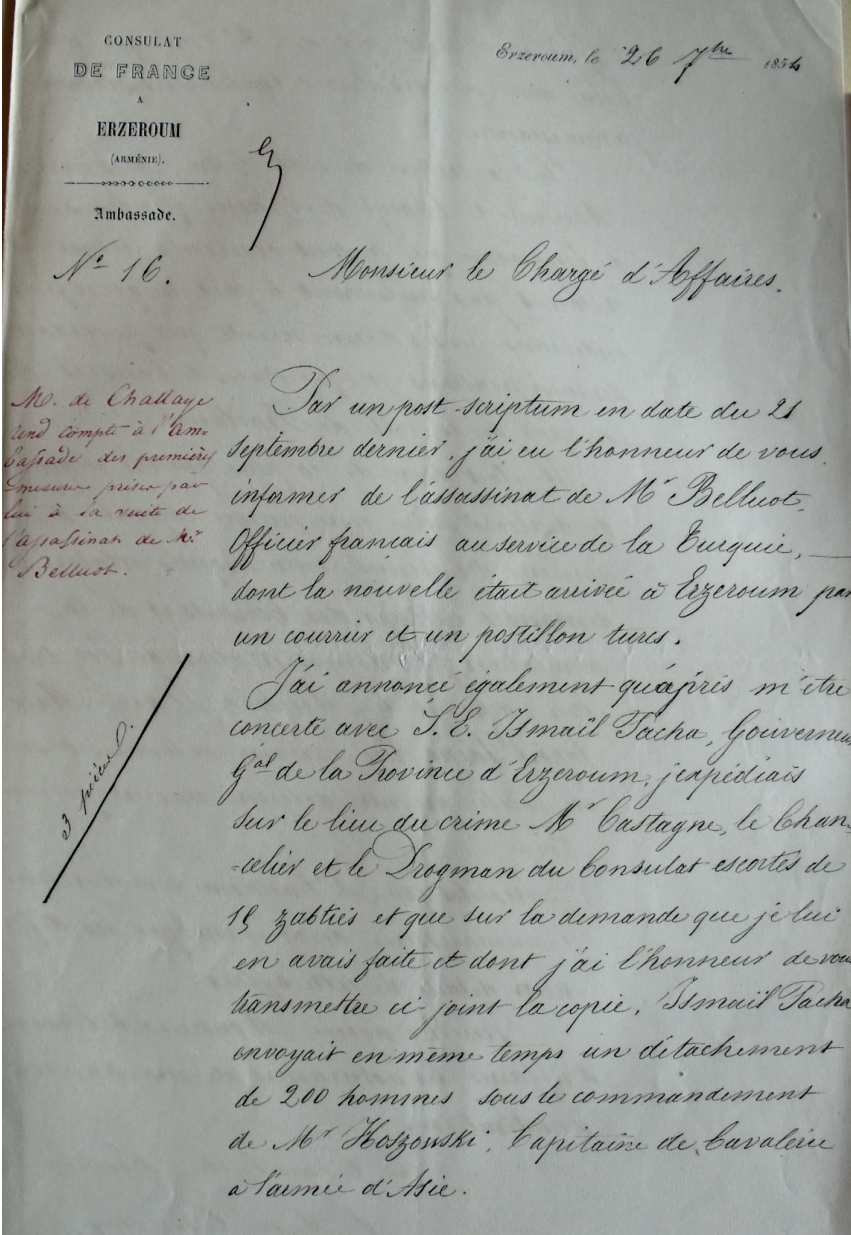 CONSULAT
DE FRANCE
A
ERZEROUM
(ARMÉNIE).
Ambassade.
Nº 16.
Erzeroum, le 26 7bre 1854
Monsieur le Chargé d'Affaires.
M. de Challaye
rend compte à l'Am-
bassade des premières
mesures prises par
lui à la suite de
l'assassinat de Mr
Belluot.
3 pièces.
Par un post-scriptum en date du 21
septembre dernier, j'ai eu l'honneur de vous
informer de l'assassinat de Mr Belluot,
Officier français au service de la Turquie,
dont la nouvelle était arrivée à Erzeroum par
un courrier et un postillon turcs.
J'ai annoncé également qu'après m'être
concerté avec S. E. Ismaïl Pacha, Gouverneur
Gal de la Province d'Erzeroum, j'expédiais
sur le lieu du crime Mr Castagne, le Chan-
-celier et le Drogman du Consulat escortés de
15 zabtiés et que sur la demande que je lui
en avais faite et dont j'ai l'honneur de vous
transmettre ci-joint la copie, Ismaïl Pacha
envoyait en même temps un détachement
de 200 hommes sous le commandement
de Mr Koszowski, Capitaine de Cavalerie
à l'armée d'Asie.